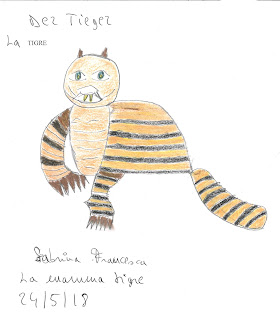 Der Tieger
La TIGRE
Sabrina Francesca
La mamma tigre
24/5/18